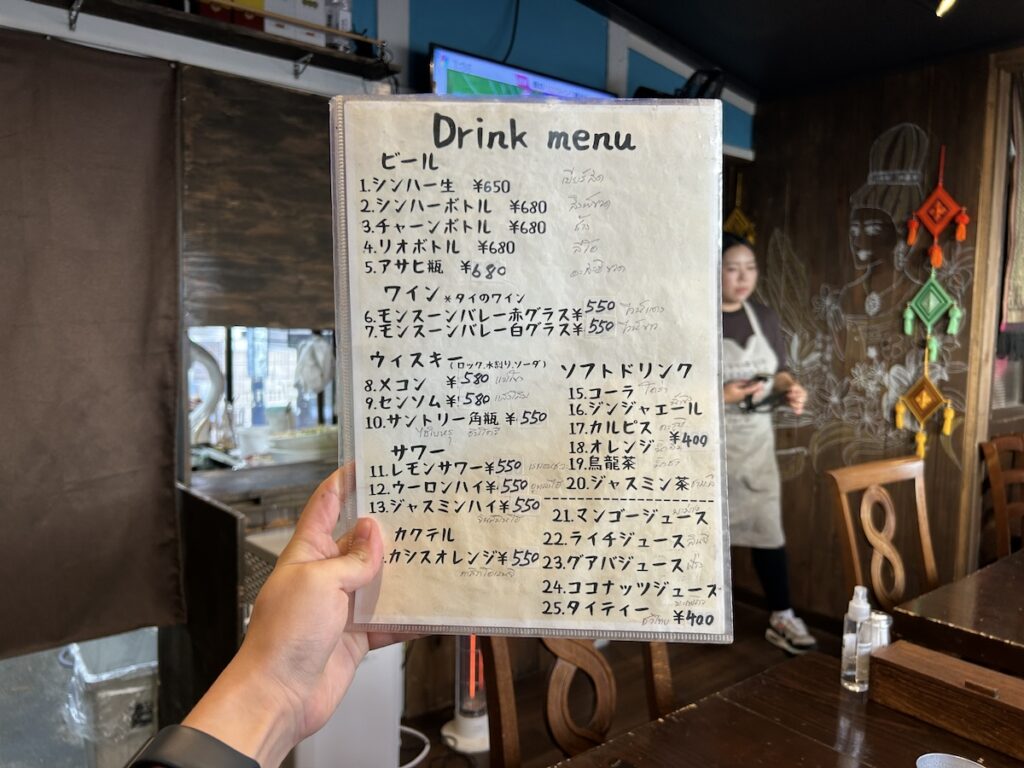 Drink menu
ビール
1.シンハー生 ¥650
2.シンハーボトル ¥680
3.チャーンボトル ¥680
4.リオボトル ¥680
5.アサヒ瓶 ¥680
ワイン *タイのワイン
6.モンスーンバレー赤グラス¥550
7.モンスーンバレー白グラス¥550
ウィスキー(ロック,水割り,ソーダ)
8.メコン ¥580
9.センソム ¥580
10.サントリー角瓶 ¥550
サワー
11.レモンサワー¥550
12.ウーロンハイ¥550
13.ジャスミンハイ¥550
カクテル
.カシスオレンジ¥550
ソフトドリンク
15.コーラ
16.ジンジャエール
17.カルピス
18.オレンジ ¥400
19.烏龍茶
20.ジャスミン茶
21.マンゴージュース
22.ライチジュース
23.グアバジュース
24.ココナッツジュース
25.タイティー ¥400